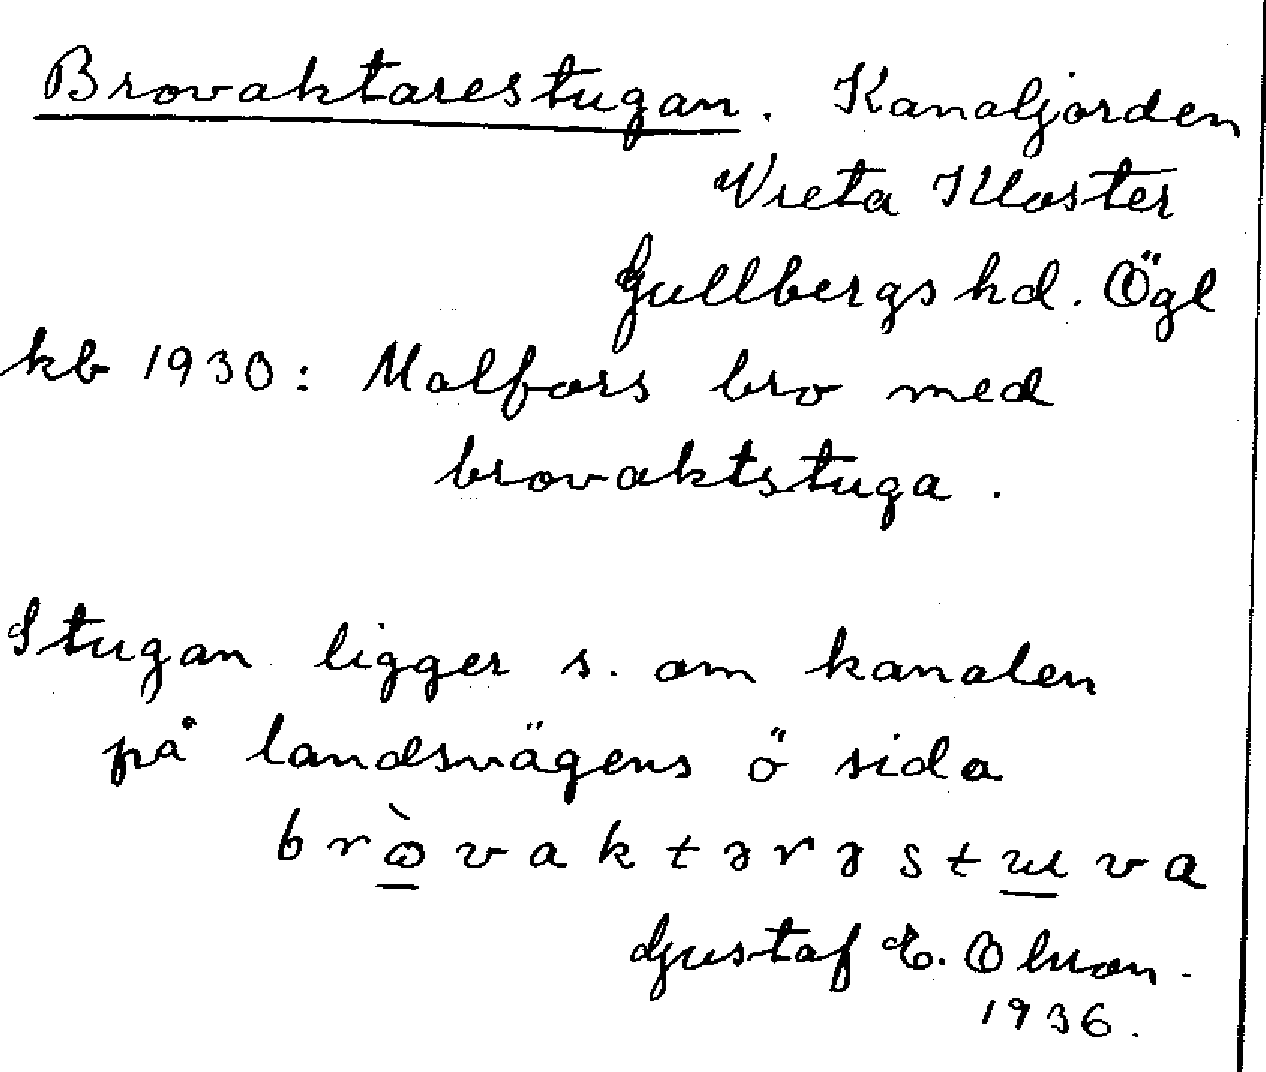 Brovaktarestugan. Kanaljorden
Vreta Kloster
Gullbergs hd. Ögl
kb 1930: Malfors bro med
brovaktstuga.
Stugan ligger s. om kanalen
på landsvägens ö sida
bròvaktərəstuva
Gustaf E. Olsson.
1936.